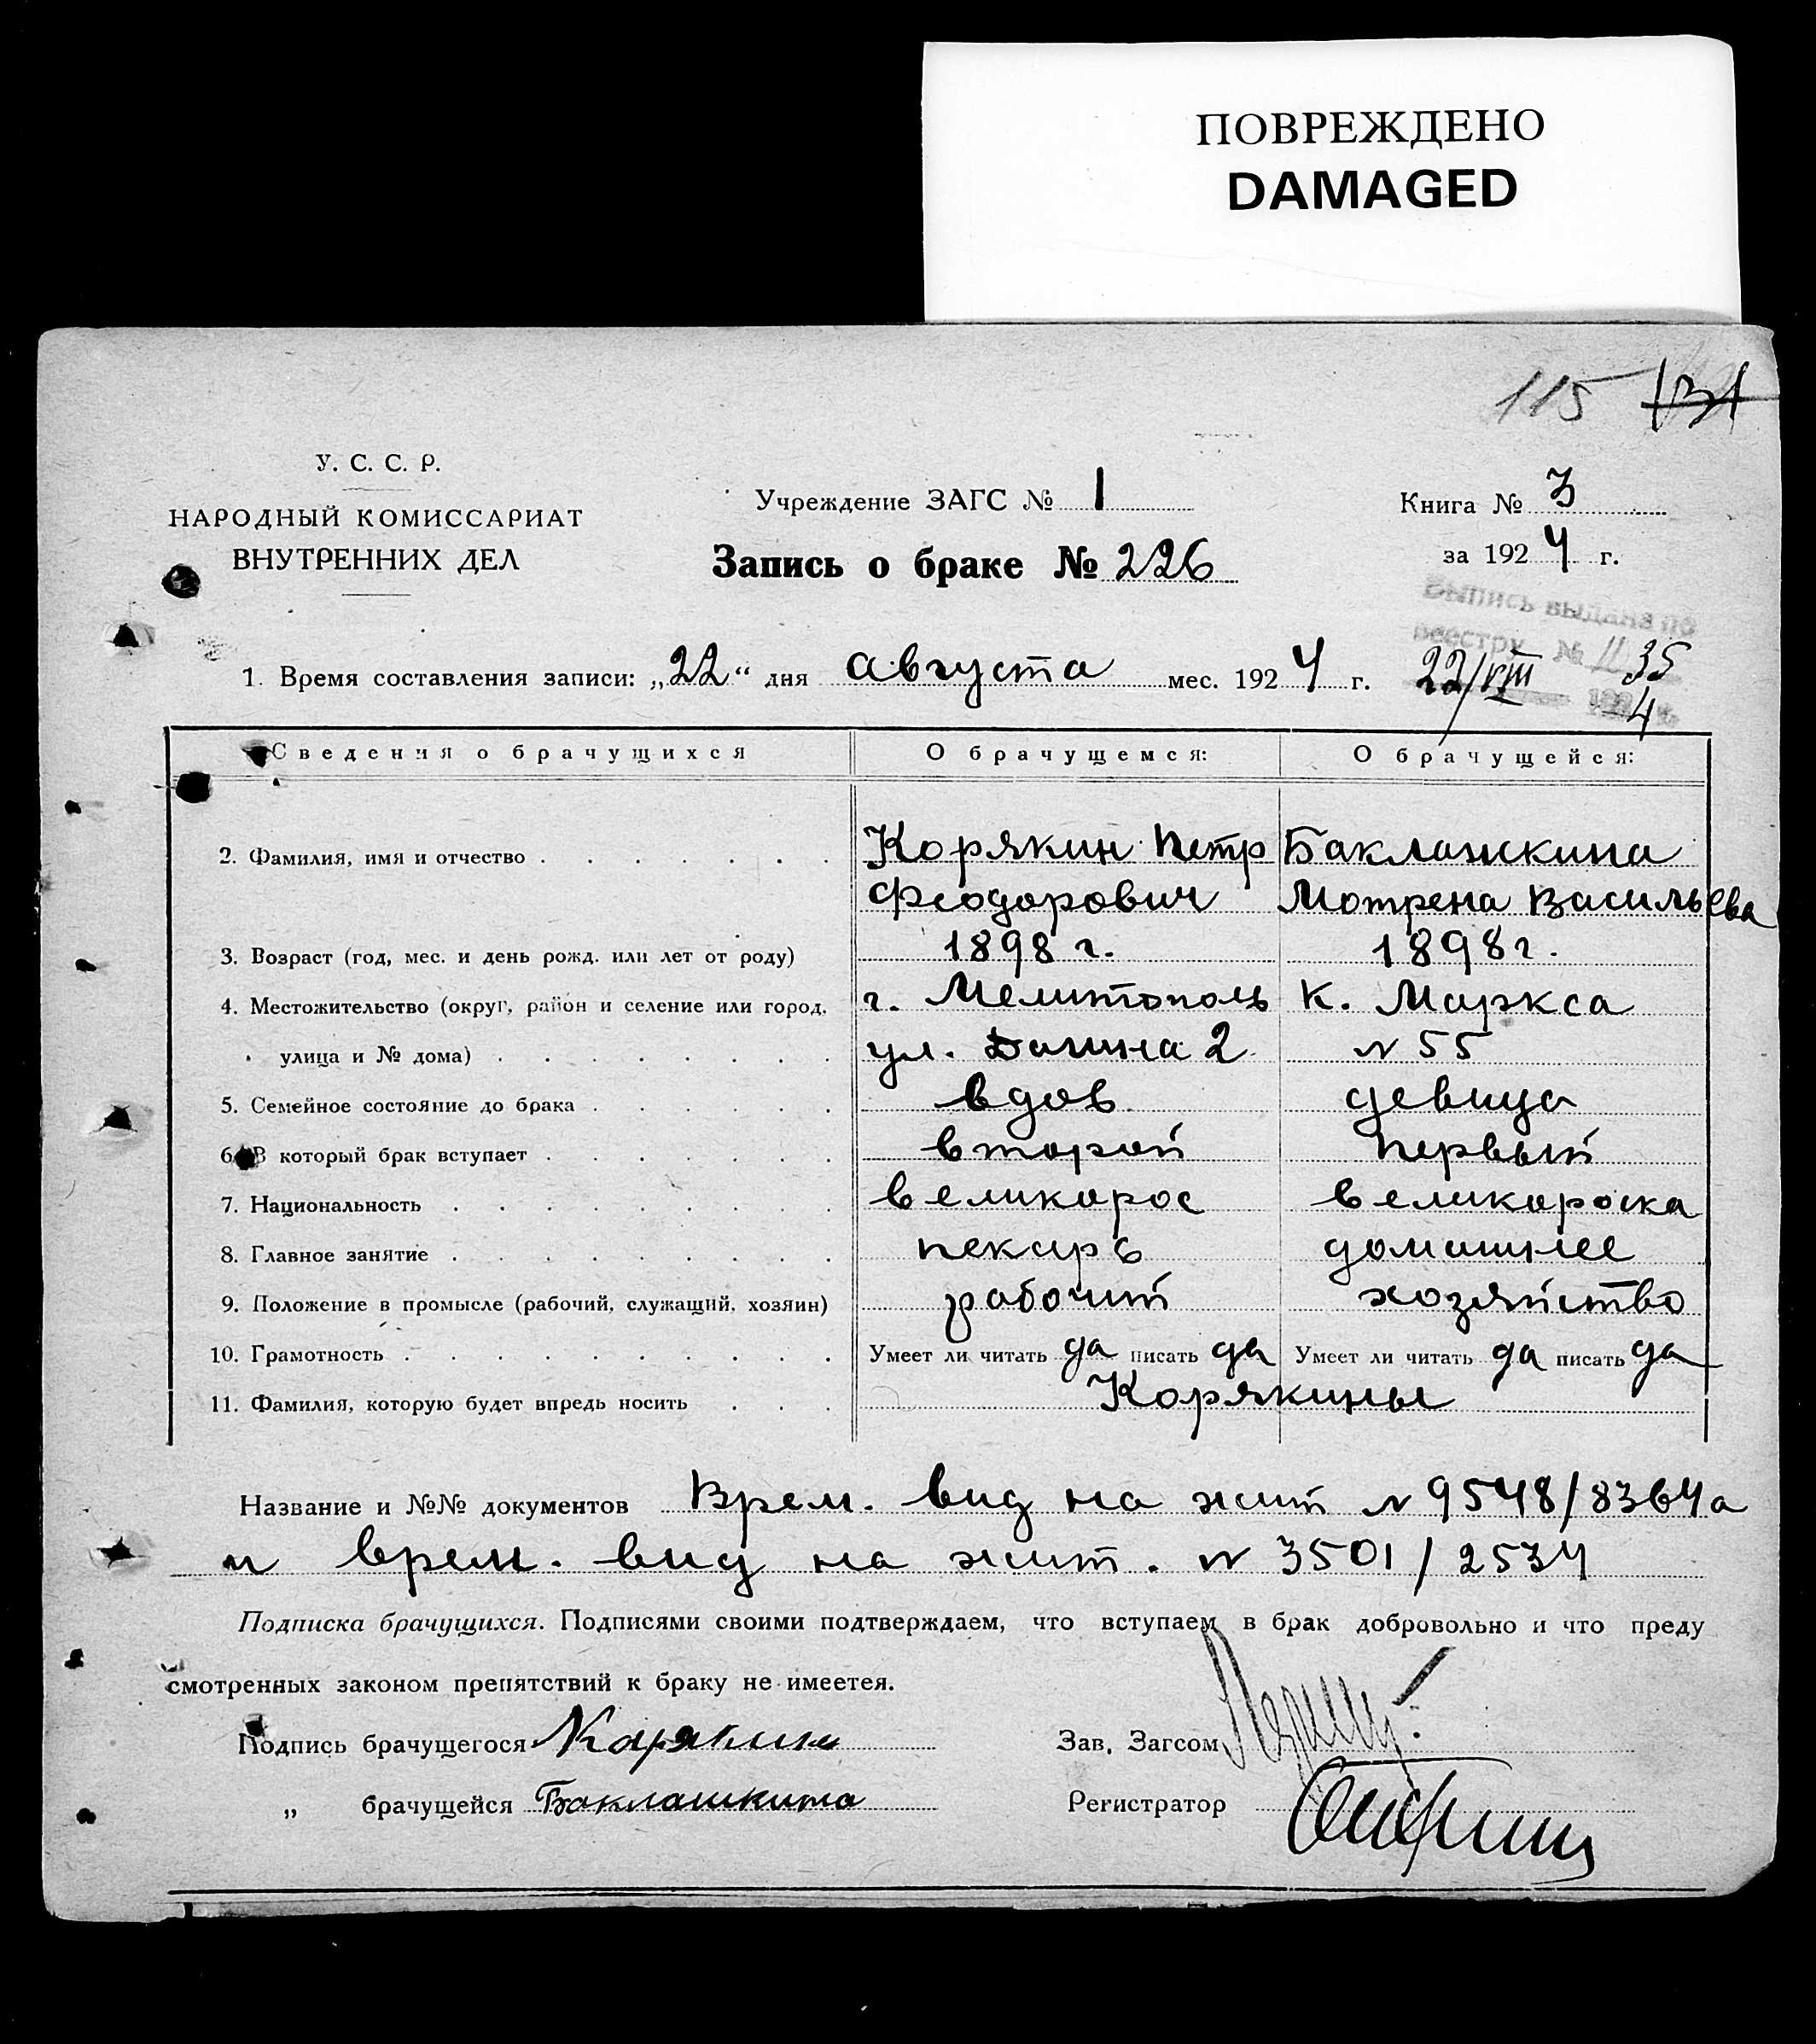 ПОВРЕЖДЕНО
DAMAGED
115 131
У. С. С. Р.
НАРОДНЫЙ КОМИССАРИАТ
ВНУТРЕННИХ ДЕЛ
Учреждение ЗАГС № 1
Запись о браке № 226
Книга № 3
за 1924 г.
Выпись выдана по
реестру № 1135
22/VIII 1924
1. Время составления записи: „22“ дня августа мес. 1924 г.
Сведения о брачущихся О брачущемся: О брачущейся:
2. Фамилия, имя и отчество Корякин Петр Баклашкина
Феодорович Мотрена Васильева
3. Возраст (год, мес. и день рожд. или лет от роду) 1898 г. 1898 г.
4. Местожительство (округ, район и селение или город, г. Мелитополь К. Маркса
улица и № дома) ул. 2 № 55
5. Семейное состояние до брака вдов девица
6. В который брак вступает второй первый
7. Национальность великорос великороска
8. Главное занятие пекарь домашнее
9. Положение в промысле (рабочий, служащий, хозяин) рабочий хозяйство
10. Грамотность Умеет ли читать да писать да Умеет ли читать да писать да
11. Фамилия, которую будет впредь носить Корякины
Название и №№ документов Врем. вид на жит № 9548/8364а
и врем. вид на жит. № 3501/2534
Подписка брачущихся. Подписями своими подтверждаем, что вступаем в брак добровольно и что преду
смотренных законом препятствий к браку не имеетея.
Подпись брачущегося Карякин Зав. Загсом
„ брачущейся Баклашкина Регистратор